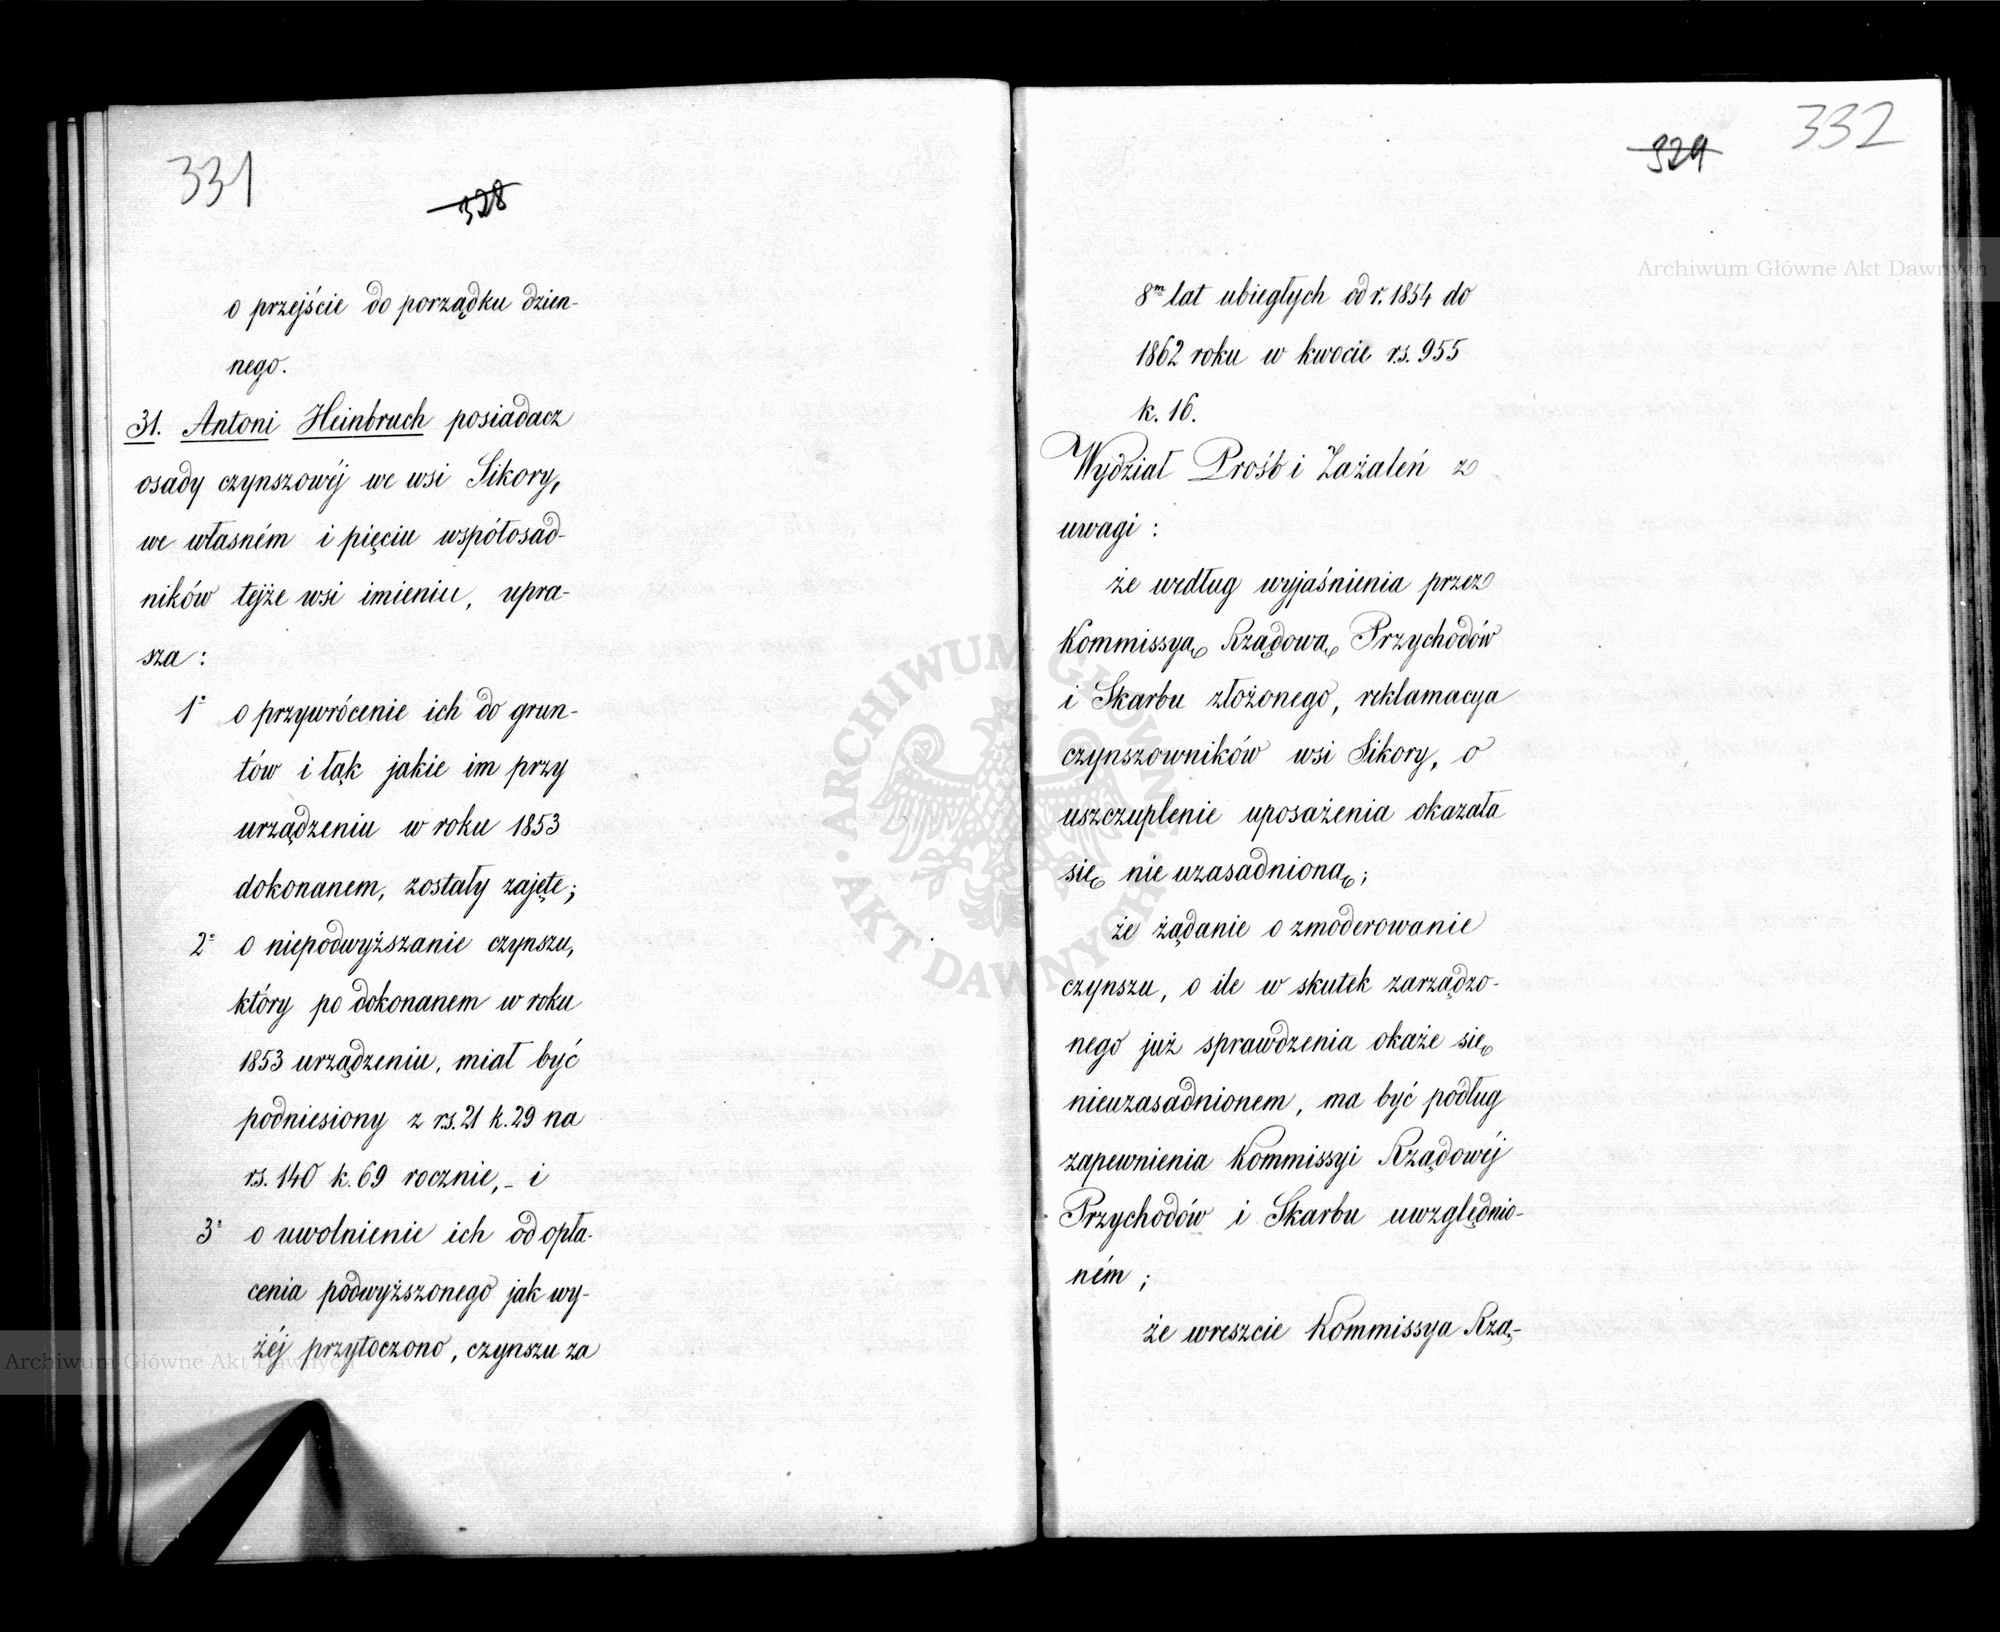 331
328
o przejście do porządku dzien-
nego.
31. Antoni Heinbruch posiadacz
osady czynszowéj we wsi Sikory,
we własném i pięciu współosad-
ników tejże wsi imieniu, upra-
sza:
1° o przywrócenie ich do grun-
tów i łąk jakie im przy
urządzeniu w roku 1853
dokonanem, zostały zajęte;
2° o niepodwyższanie czynszu,
który po dokonanem w roku
1853 urządzeniu, miał być
podniesiony z rs. 21 k. 29 na
rs. 140 k. 69 rocznie,- i
3° o uwolnienie ich od opła-
cenia podwyższonego jak wy-
żéj przytoczono, czynszu za
332
329
8m lat ubiegłych od r. 1854 do
1862 roku w kwocie rs. 955
k. 16.
Wydział Próśb i Zażaleń z
uwagi:
że według wyjaśnienia przez
Kommissyą Rządową Przychodów
i Skarbu złożonego, reklamacya
czynszowników wsi Sikory, o
uszczuplenie uposażenia okazała
się nie uzasadnioną;
że żądanie o zmoderowanie
czynszu, o ile w skutek zarządzo-
nego już sprawdzenia okaże się
nieuzasadnionem, ma być podług
zapewnienia Kommissyi Rządowéj
Przychodów i Skarbu uwzględnio-
ném;
że wreszcie Kommissya Rzą-
Archiwum Główne Akt Dawnych
Archiwum Główne Akt Dawnych
ARCHIWUM GŁÓWNE · AKT DAWNYCH ·